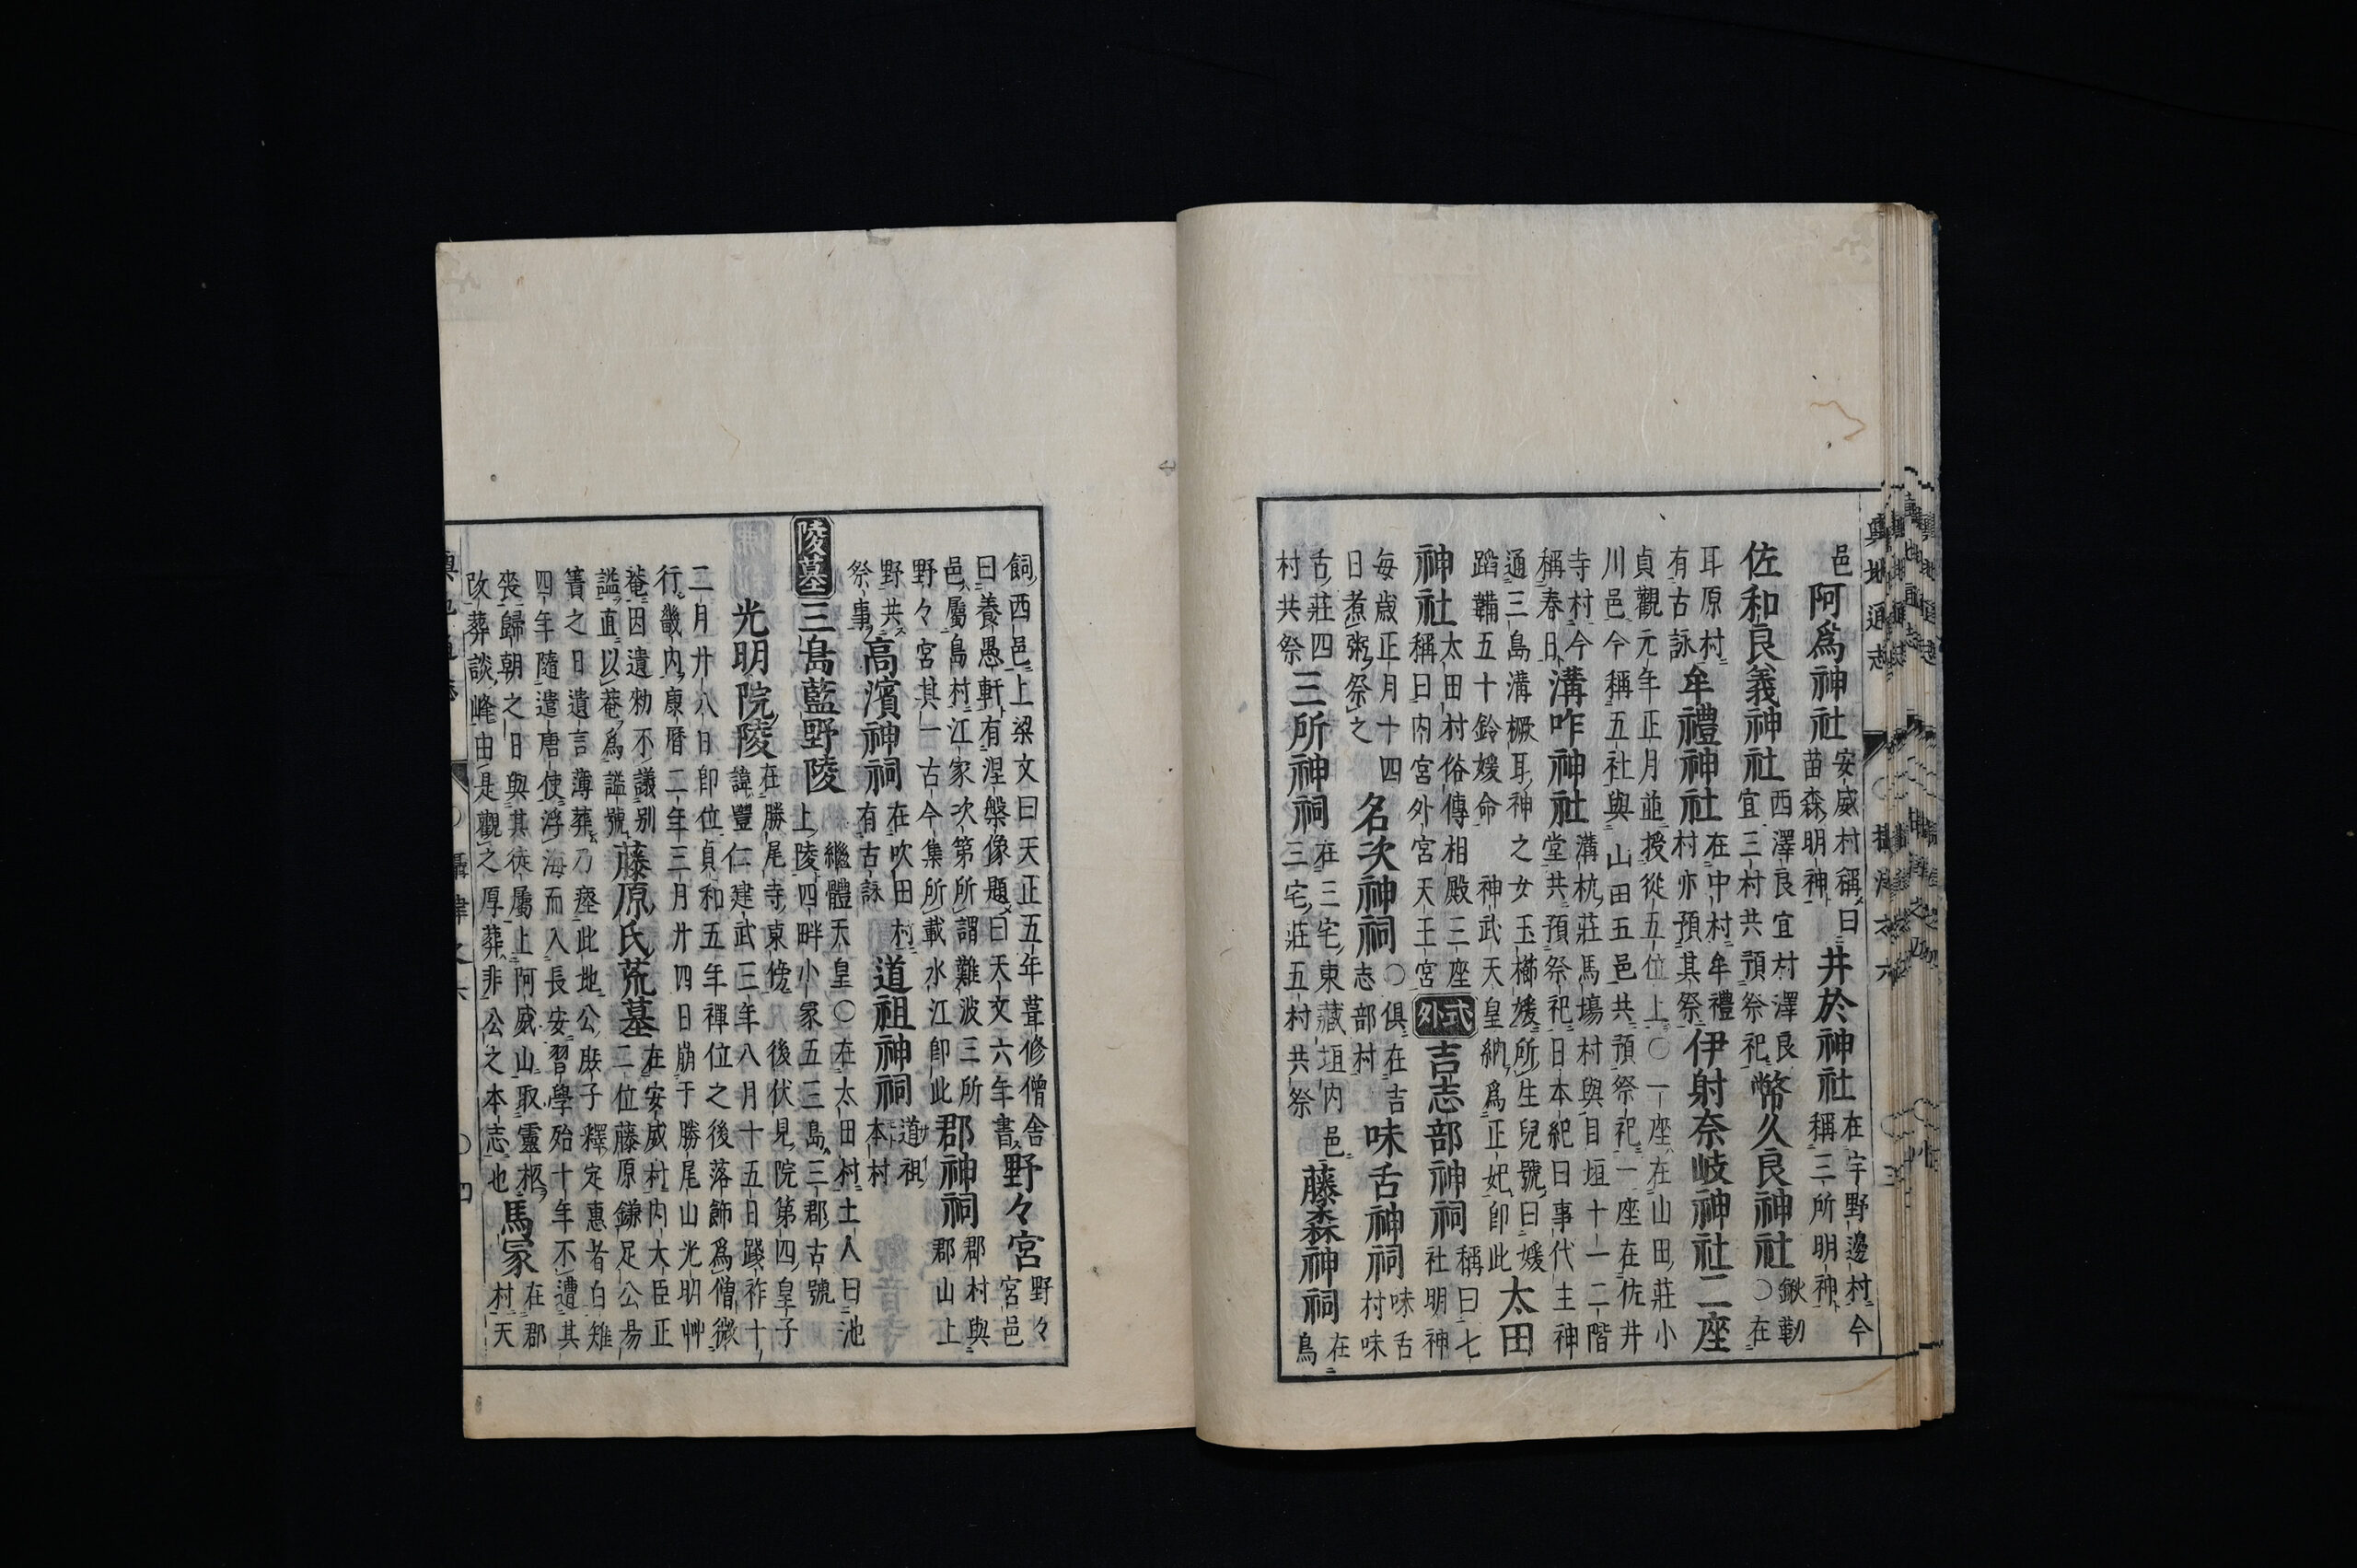 輿地通志
邑
阿爲神社
安威村稱曰
苗森明神
井於神社
在宇野邊村今
稱三所明神
佐和良義神社
西澤良宜村澤良
宜三村共預祭祀
幣久良神社
鍬靱
〇在
耳原村
有古詠
牟禮神社
在中村牟禮
村亦預其祭
伊射奈岐神社二座
貞觀元年正月並授從五位上〇一座在山田莊小
川邑今稱五社與山田五邑共預祭祀一座在佐井
寺村今
稱春日
溝咋神社
溝杭莊馬塲村與目垣十一二階
堂共預祭祀日本紀曰事代主神
通三島溝橛耳神之女玉櫛媛所生兒號曰媛
蹈鞴五十鈴媛命 神武天皇納爲正妃卽此
太田
神社
太田村俗傳相殿三座
稱日內宮外宮天王宮
式外
吉志部神祠
稱曰七
社明神
每歲正月十四
日煮粥祭之
名次神祠
〇俱在吉
志部村
味舌神祠
味舌
村味
舌莊四
村共祭
三所神祠
在三宅東藏垣內邑
三宅莊五村共祭
藤森神祠
在
鳥
飼西邑上梁文曰天正五年葺修僧舍
曰養愚軒有涅槃像題曰天文六年書
野々宮
野々
宮邑
邑屬島村江家次第所謂難波三所
野々宮其一古今集所載水江卽此
郡神祠
郡村與
郡山上
野共
祭事
高濱神祠
在吹田村
有古詠
道祖神祠
道祖
本村
陵墓
三島藍野陵
繼體天皇〇在太田村土人曰池
上陵四畔小冢五三島三郡古號
光明院陵
在勝尾寺東傍後伏見院第四皇子
諱豐仁建武三年八月十五日踐祚十
二月廿八日卽位貞和五年禪位之後落飾爲僧微
行畿內康曆二年三月廿四日崩于勝尾山光明艸
菴因遺勑不議别
謚直以菴爲謚號
藤原氏荒墓
在安威村內大臣正
二位藤原鎌足公昜
簀之日遺言薄葬乃瘞此地公庶子釋定惠者白雉
四年隨遣唐使浮海而入長安習學殆十年不遭其
喪歸朝之日與其徒屬上阿威山取靈柩
改葬談峰由是觀之厚葬非公之本志也
馬冢
在郡
村天